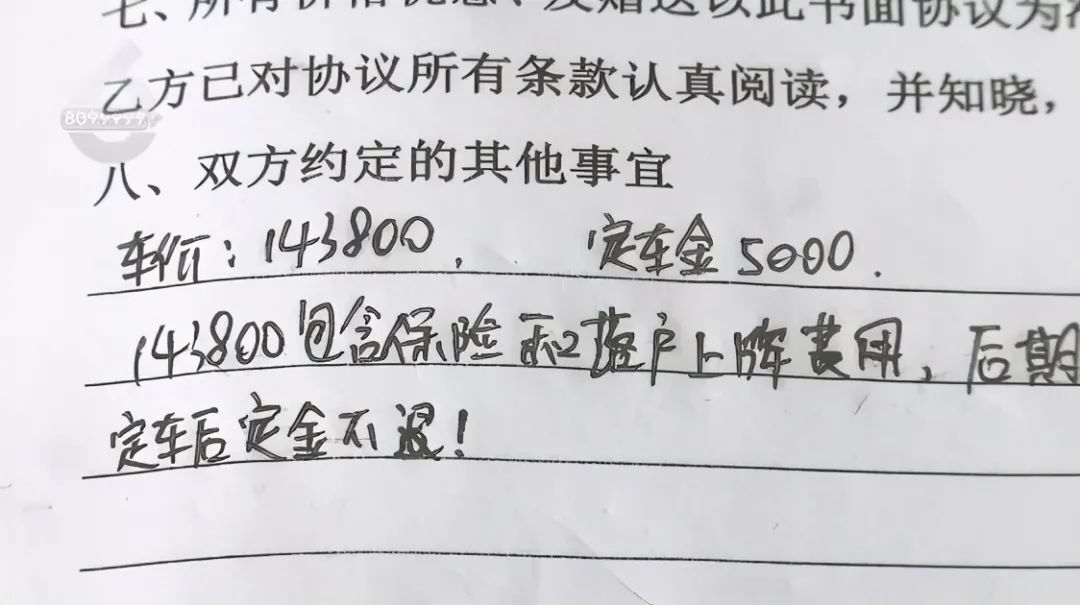 七、所有价格优惠、及赠送以此书面协议为
乙方已对协议所有条款认真阅读，并知晓，
8099999
八、双方约定的其他事宜
车价：143800. 定车金5000.
143800包含保险和落户上牌费用，后期
定车后定金不退！